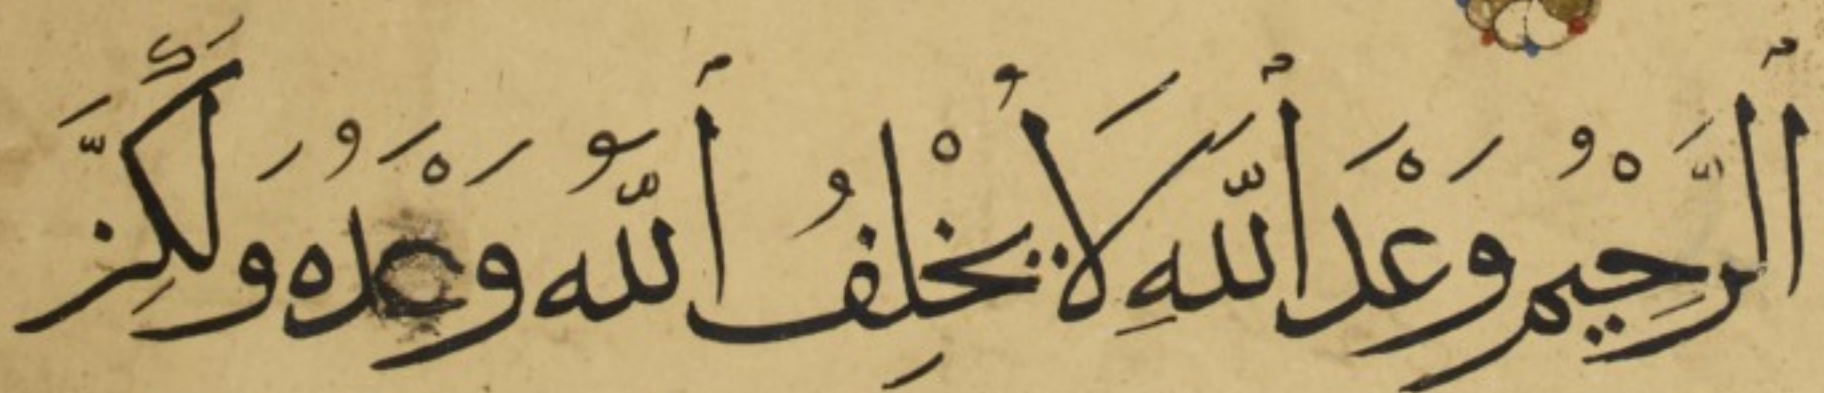 ٱلرَّحِيْمُ وَعْدَ ٱللَّهِ لَا يُخْلِفُ ٱللَّهُ وَعْدَهُ وَلَكِنَّ